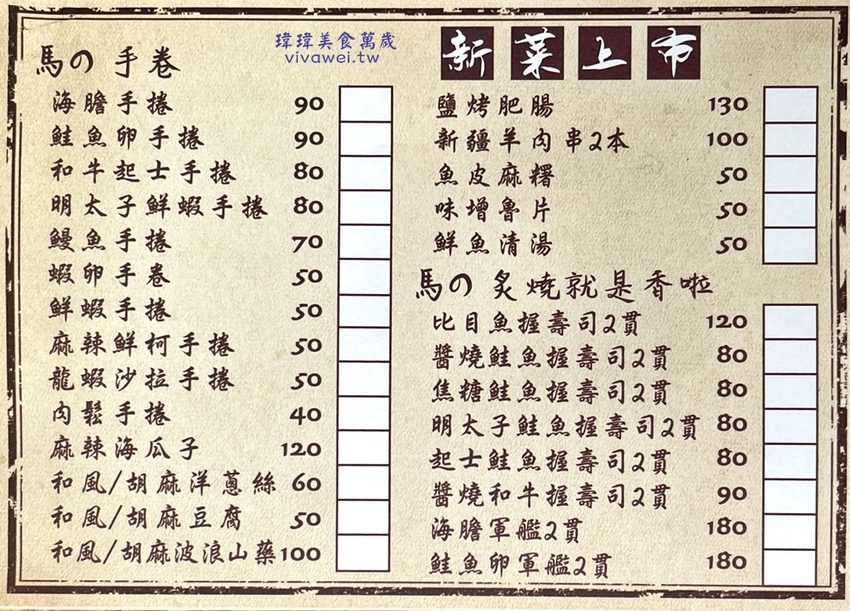 瑋瑋美食萬歲
vivawei.tw
馬の 手卷
海膽手捲 90
鮭魚卵手捲 90
和牛起士手捲 80
明太子鮮蝦手捲 80
鰻魚手捲 70
蝦卵手卷 50
鮮蝦手捲 50
麻辣鮮柯手捲 50
龍蝦沙拉手捲 50
肉鬆手捲 40
麻辣海瓜子 120
和風/胡麻洋蔥絲 60
和風/胡麻豆腐 50
和風/胡麻波浪山藥 100
新菜上市
鹽烤肥腸 130
新疆羊肉串2本 100
魚皮麻糬 50
味增魯片 50
鮮魚清湯 50
馬の 炙燒就是香啦
比目魚握壽司2貫 120
醬燒鮭魚握壽司2貫 80
焦糖鮭魚握壽司2貫 80
明太子鮭魚握壽司2貫 80
起士鮭魚握壽司2貫 80
醬燒和牛握壽司2貫 90
海膽軍艦2貫 180
鮭魚卵軍艦2貫 180